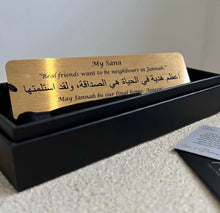 My Sana
"Real friends want to be neighbours in Jannah."
أعظم هدية في الحياة هي الصداقة، ولقد استلمتها
May Jannah be our final home, Ameen